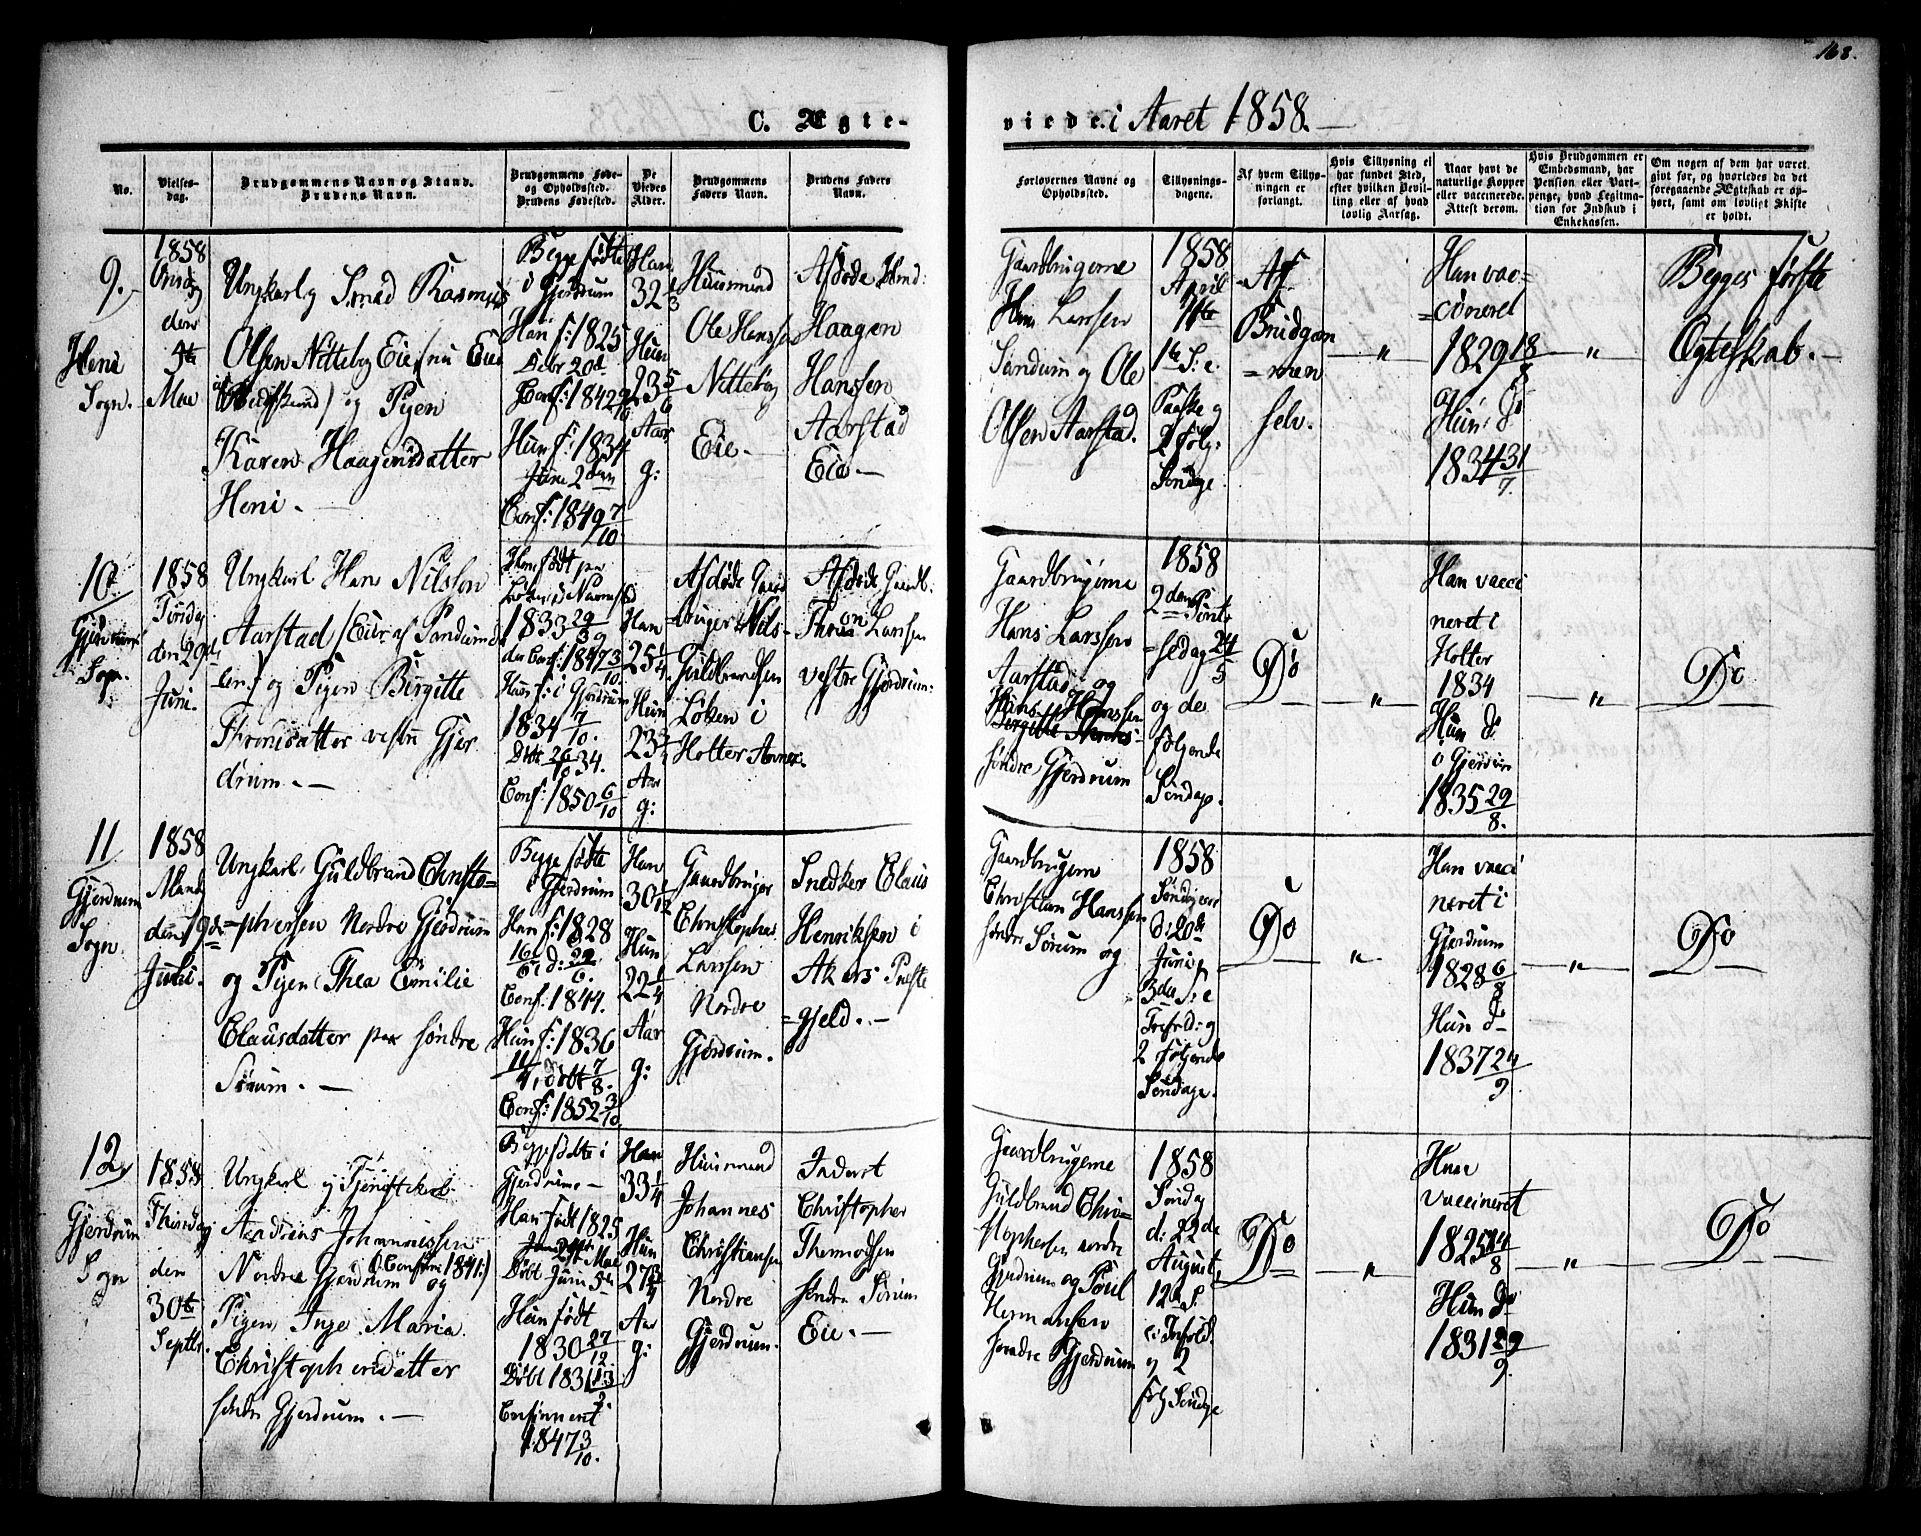 168.
C. Ægte-
viede i Aaret 1858.
No.
Vielses-
dag.
Brudgommens Navn og Stand.
Brudens Navn.
Brudgommens Føde-
og Opholdssted.
Brudens Fødested.
De
Viedes
Alder.
Brudgommens
Faders Navn.
Brudens Faders
Navn.
Forlovernes Navne og
Opholdssted.
Tillysnings-
dagene.
Af hvem Tillys-
ningen er
forlangt.
Hvis Tillysning ei
har fundet Sted,
efter hvilken Bevil-
ling eller af hvad
lovlig Aarsag.
Naar havt de
naturlige Kopper
eller vaccinerede.
Attest derom.
Hvis Brudgommen er
Embedsmand, har
Pension eller Vart-
penge, hvad Legitima-
tion for Indskud i
Enkekassen.
Om nogen af dem har været
gift før, og hvorledes da det
foregaaende Ægteskab er op-
hørt, samt om lovligt Skifte
er holdt.
9.
Heni
Sogn.
1858
Onsdag
den
5te
Mai
Ungkarl og Smed Rasmus
Olsen Nitteby Eie (nu Eie
) og Pigen
Karen Haagensdatter
Heni.
Begge fødte
i Gjerdrum
Han f: 1825
Debr 20d
Conf: 1842 9/10
Hun f: 1834
Juni 2den
Conf: 1849 7/10
Han
32 1/3
Hun
23 5/6
Aar
g:
Huusmand
Ole Hanssen
Nitteby
Eie.
Afdøde Hmd:
Haagen
Hanssen
Aarstad
Eie
Gaardbrugerne
Hans Larssen
Sandum og Ole
Olsen Aarstad.
1858
April
11te
1te S: e.
Paaske og
2 følg:
Søndge.
Af
Brudgom
=men
selv.
"
Han vac=
=cineret
1829 18/8
og
Hun do
1834 31/7.
"
Begges første
Ægteskab.
10.
Gjerdrums
Sogn.
1858
Tirsdag
den 29de
Juni.
Ungkarl Hans Nilssen
Aarstad (Eier af Sandum
) og Pigen Birgitte
Thronsdatter vestre Gjer
drum.
Han født paa
Løken i Nannestad
1833 29/3
Conf: 1847 3/10.
Hun f: i Gjerdrum
1834 7/10.
Døbt 26/10 34.
Conf: 1850 6/10
Han
25 1/4
Hun
23 3/4
Aar
g:
Afdøde Gaard
=bruger Nils
Guldbrandsen
Løken i
Holter Annex.
Afdøde Gaardb:
Thron Larssen
vestre Gjerdrum:
Gaardbrugerne
Hans Larssen
Aarstad og
Hans Hanssen
søndre Gjerdrum
1858
2den Pint
=sedag 24/5
og de
følgende
Søndage.
Do
"
Han vacci
neret i
Holter
1834
Hun do
i Gjerdrum
1835 29/8.
"
Do
11
Gjerdrum
Sogn.
1858
Mand
den 19de
Juli.
Ungkarl Guldbrand Christo=
=phersen Nordre Gjerdrum
og Pigen Thea Emilie
Clausdatter paa søndre
Sørum.
Begge fødte
i Gjerdrum
Han f: 1828
16/6 d: 22/6.
Conf: 1844.
Hun f: 1836
døbt 7/8.
Conf: 1852 3/10.
Han
30 1/12
Hun
22 1/4
Aar
g:
Gaardbruger
Christopher
Larssen
Nordre
Gjerdrum.
Snedker Claus
Henriksen i
Akers Præste
=gjeld.
Gaardbrugerne
Christian Hanssen
søndre Sørum og
1858
d: 20de
Juni
3die S: e
Trefold: og
2 følgende
Søndage.
Do
"
Han vacci
neret i
Gjerdrum
1828 6/8
Hun do
1837 24/9
"
Do
12
Gjerdrum
Sogn
1858
Thorsdag
den
30te
Septbr.
Ungkarl og Tjenestekarl
Andreas Johannessen
Nordre Gjerdrum (Confirm: 1841:) og
Pigen Inge Maria
Christophersdatter
søndre Gjerdrum.
Begge fødte i
Gjerdrum
Han født 1825
29de Mai
Døbt Juni 5te
Hun født
1830 27/12
Døbt 1831 13/2.
Confirmeret
1847 3/10.
Han
33 1/4
Hun
27 3/4
Aar
g:
Huusmand
Johannes
Christiansen
Nordre
Gjerdrum.
Inderst
Christopher
Thermodsen
søndre Sørum
Eie.
Gaardbrugerne
Guldbrand Chri=
stophersen nordre
Gjerdrum og Poul
Hermansen
søndre Gjerdrum
1858
Søndag
d: 22de
August,
12te S.
e: Trefold.
og 2
følg Søndge
Do
"
Han
vaccineret
1825 24/8
Hun do
1831 29/9.
"
Do